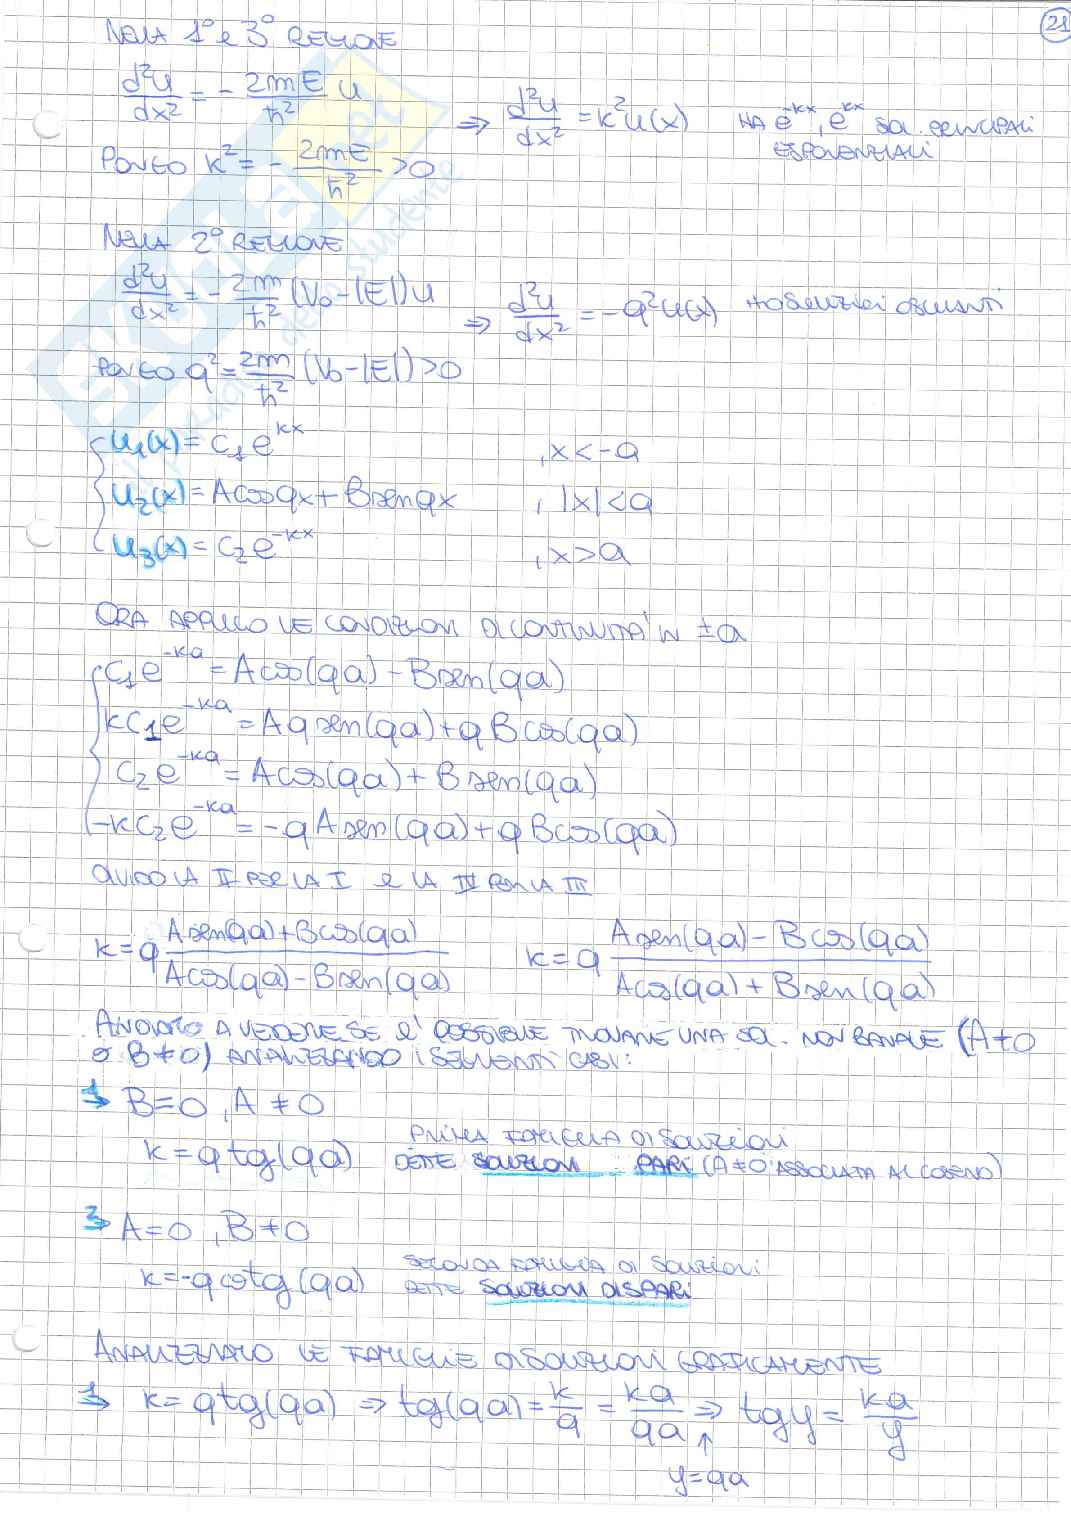 21
NELLA 1° e 3° REGIONE
d²u/dx² = - 2mE/ħ² u
⇒ d²u/dx² = k²u(x) HA e^-kx, e^kx SOL. PRINCIPALI
ESPONENZIALI
PONGO k² = - 2mE/ħ² > 0
NELLA 2° REGIONE
d²u/dx² = - 2m/ħ² (V₀-|E|)u
⇒ d²u/dx² = -q²u(x) HO SOLUZIONI OSCILLANTI
PONGO q² = 2m/ħ² (V₀-|E|) > 0
u₁(x) = C₁e^kx , x<-a
u₂(x) = Acosqx + Bsenqx , |x|<a
u₃(x) = C₂e^-kx , x>a
ORA APPLICO LE CONDIZIONI DI CONTINUITÀ IN ±a
C₁e^-ka = Acos(qa) - Bsen(qa)
kC₁e^-ka = Aqsen(qa) + qBcos(qa)
C₂e^-ka = Acos(qa) + Bsen(qa)
-kC₂e^-ka = -qAsen(qa) + qBcos(qa)
DIVIDO LA II PER LA I e LA IV PER LA III
k = q (Asen(qa)+Bcos(qa))/(Acos(qa)-Bsen(qa)) k = q (Asen(qa)-Bcos(qa))/(Acos(qa)+Bsen(qa))
ANDIAMO A VEDERE SE E' POSSIBILE TROVARE UNA SOL. NON BANALE (A≠0
o B≠0) ANALIZZANDO I SEGUENTI CASI:
1→ B=0, A≠0
PRIMA FAMIGLIA DI SOLUZIONI
k = qtg(qa) DETTE SOLUZIONI PARI (A≠0 ASSOCIATA AL COSENO)
2→ A=0, B≠0
SECONDA FAMIGLIA DI SOLUZIONI
k = -qcotg(qa) DETTE SOLUZIONI DISPARI
ANALIZZIAMO LE FAMIGLIE DI SOLUZIONI GRAFICAMENTE
1→ k = qtg(qa) ⇒ tg(qa) = k/q = ka/qa ⇒ tgy = ka/y
↑
y=qa